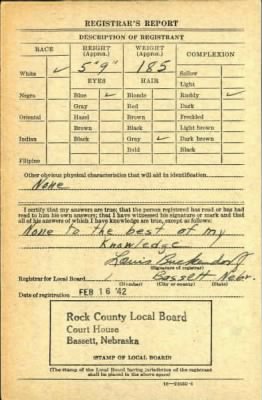 REGISTRAR'S REPORT
DESCRIPTION OF REGISTRANT
RACE
HEIGHT (Approx.)
WEIGHT (Approx.)
COMPLEXION
White ✓
5' 9"
185
Sallow
EYES
HAIR
Light
Negro
Blue ✓
Blonde
Ruddy ✓
Gray
Red
Dark
Oriental
Hazel
Brown
Freckled
Brown
Black
Light brown
Indian
Black
Gray ✓
Dark brown
Bald
Black
Filipino
Other obvious physical characteristics that will aid in identification
None
I certify that my answers are true; that the person registered has read or has had
read to him his own answers; that I have witnessed his signature or mark and that
all of his answers of which I have knowledge are true, except as follows:
None to the best of my
Knowledge
Louis
(Signature of registrar)
Registrar for Local Board
Bassett Nebr.
(Number) (City or county) (State)
Date of registration FEB 16 '42
Rock County Local Board
Court House
Bassett, Nebraska
(STAMP OF LOCAL BOARD)
(The stamp of the Local Board having jurisdiction of the registrant
shall be placed in the above space)